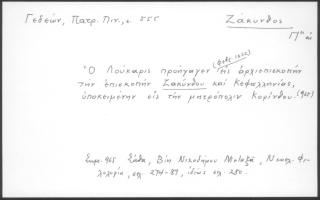 Γεδεών, Πατρ. Πιν., σ. 555
Ζάκυνθος
(Φεβρ. 1622)
Ὁ Λούκαρις προήγαγεν εἰς ἀρχιεπισκοπὴν
τὴν ἐπισκοπὴν Ζακύνθου καὶ Κεφαλληνίας,
ὑποκειμένην εἰς τὴν μητρόπολιν Κορίνθου. (965)
Σημ. 965 Σάθα, Βίη Νικοδήμου Μεταξᾶ, Νεοελ. Φι-
λολογία, σελ. 274-89, ἰδίως σελ. 280.